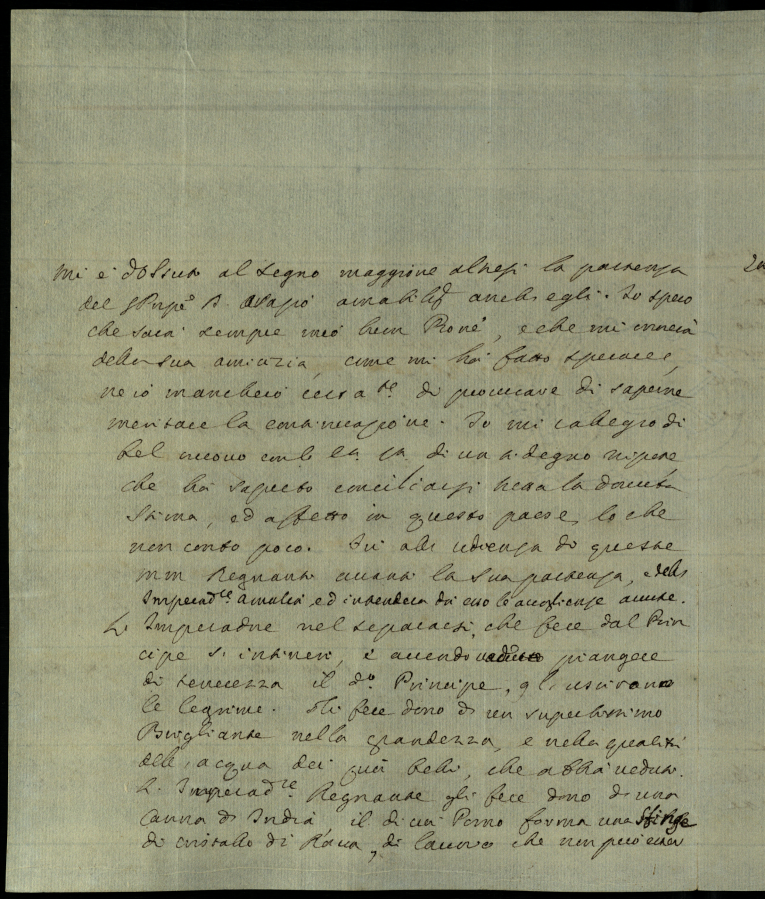 Mi è al segno maggiore altresì la partenza
del amabiliss anch egli. Io spero
che sarà sempre mio buon Prone, e che mi
della sua amicizia, come mi ha fatto sperare,
ne io mancherò certa te di procurare di saperne
meritare la continuazione. Io mi rallegro di
bel nuovo con di un sì degno nipote
che ha saputo conciliarsi tutta la dovuta
stima, ed affetto in questo paese, lo che
non conta poco. Fu all udienza di queste
MM Regnanti avanti la sua partenza, e dell
Imperad.ce Amalia, ed intenderà da esso le accoglienze avute.
L. Imperadre nel separarsi, che fece dal Prin
cipe s intenerì, e avendo piangere
di tenerezza il do. Principe, gli uscirono
le legrime. Gli fece dono di un superbissimo
Brigliante nella grandezza, e nella qualità
dell acqua dei più belli, che abbia veduti.
L. Imperad.ce Regnante gli fece dono di una
Canna di India il di cui Pomo forma una Sfinge
di cristallo di Roca, di lavoro che non può esser